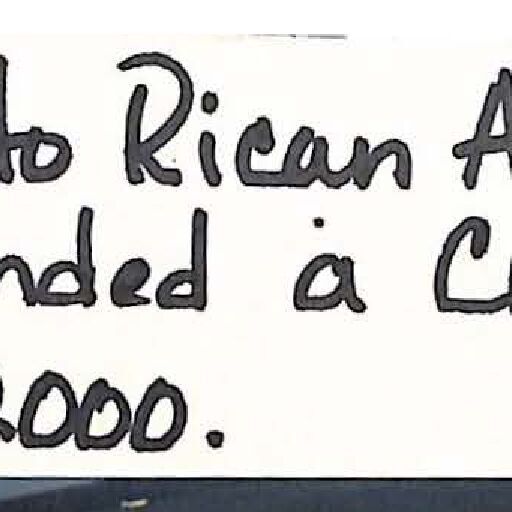 to Rican A
nded a C
2000.